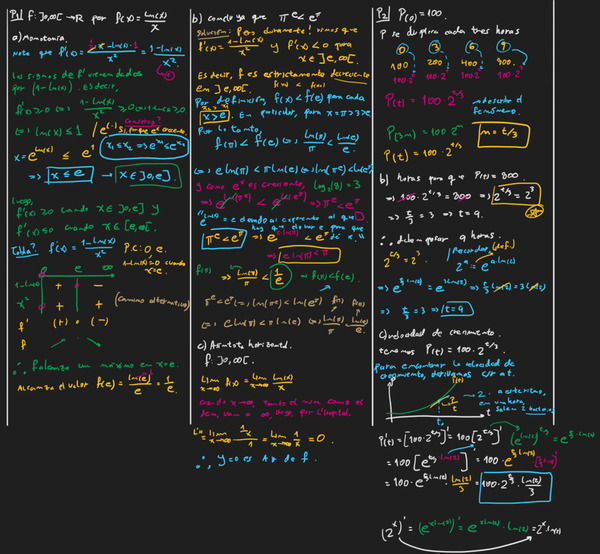 P1) f: ]0,∞[ → ℝ por f(x) = ln(x)/x
a) Monotonía.
Note que f'(x) = (1/x · x − ln(x)·1)/x² = (1−ln(x))/x²
Los signos de f' vienen dados
por (1−ln(x)). Es decir,
f'(x) ≥ 0 ⇔ (1−ln(x))/x² ≥ 0 ⇔ 1−ln(x) ≥ 0
⇔ ln(x) ≤ 1 / e^(·) Sí, porque es creciente.
x = e^(ln(x)) ≤ e^1
x1 ≤ x2 ⇒ e^x1 ≤ e^x2
⇒ x ≤ e → x ∈ ]0,e].
Luego,
f'(x) ≥ 0 cuando x ∈ ]0,e] y
f'(x) ≤ 0 cuando x ∈ [e,∞[.
Tabla? f'(x) = (1−ln(x))/x² P.C: 0, e.
1−ln(x)=0 cuando x=e.
0 e ∞
1−ln(x) + −
x² + +
f' (+) (−)
f
(camino alternativo)
∴ f alcanza un máximo en x=e.
Alcanza el valor f(e) = ln(e)/e = 1/e.
b) Concluya que π^e < e^π
Solución: Por duramente! vimos que
f'(x) = (1−ln(x))/x² y f'(x) < 0 para
x ∈ ]e,∞[.
Es decir, f es estrictamente decreciente
en ]e,∞[.
Por definición, f(x) < f(e) para cada
x > e. En particular, para x = π > e
Por lo tanto,
f(π) < f(e) ⇔ ln(π)/π < ln(e)/e
⇔ e ln(π) < π ln(e) ⇔ ln(π^e) < ln(e^π)
y como e^x es creciente,
e^ln(π^e) < e^ln(e^π) ⇒ π^e < e^π
π^e < e^π
f(π) ⇒ ln(π)/π < 1/e ⇒ f(π) < f(e).
π^e < e^π ⇔ ln(π^e) < ln(e^π)
⇔ e ln(π) < π ln(e) ⇔ ln(π)/π < ln(e)/e
c) Asíntota horizontal.
f: ]0,∞[.
lim x→∞ f(x) = lim x→∞ ln(x)/x
cuando x→∞, tanto el num como el
den, van a ∞, luego, por L'Hopital.
L'H = lim x→∞ (1/x)/1 = lim x→∞ 1/x = 0.
∴ y=0 es A.H de f.
P2) P(0) = 100.
P se duplica cada tres horas
0 3 6 9
100 200 400 800
P(t) = 100·2^(t/3) → describe el fenómeno.
P(3m) = 100·2^m m = t/3
P(t) = 100·2^(t/3)
b) horas para que P(t) = 800
⇒ 100·2^(t/3) = 800 ⇒ 2^(t/3) = 2³
⇒ t/3 = 3 ⇒ t = 9.
∴ deben pasar 9 horas.
2^(t/3) = 2³. Recordar (def.) 2^a = e^(a·ln(2))
⇒ e^(t/3 ln(2)) = e^(3 ln(2)) ⇒ t/3 ln(2) = 3 ln(2)
⇒ t/3 = 3 ⇒ t = 9
c) velocidad de crecimiento.
tenemos P(t) = 100·2^(t/3)
para encontrar la velocidad de
crecimiento, derivamos c/r a t.
P'(t) = [100·2^(t/3)]' = 100[2^(t/3)]' (e^(ln(2)))^(t/3) = e^(t/3 ln(2))
= 100[e^(t/3·ln(2))]' = 100·e^(t/3 ln(2)) (t/3 ln(2))'
= 100·e^(t/3 ln(2)) · ln(2)/3 = 100·2^(t/3)·ln(2)/3
(2^x)' = (e^(x ln(2)))' = e^(x ln(2))·ln(2) = 2^x·ln(2)